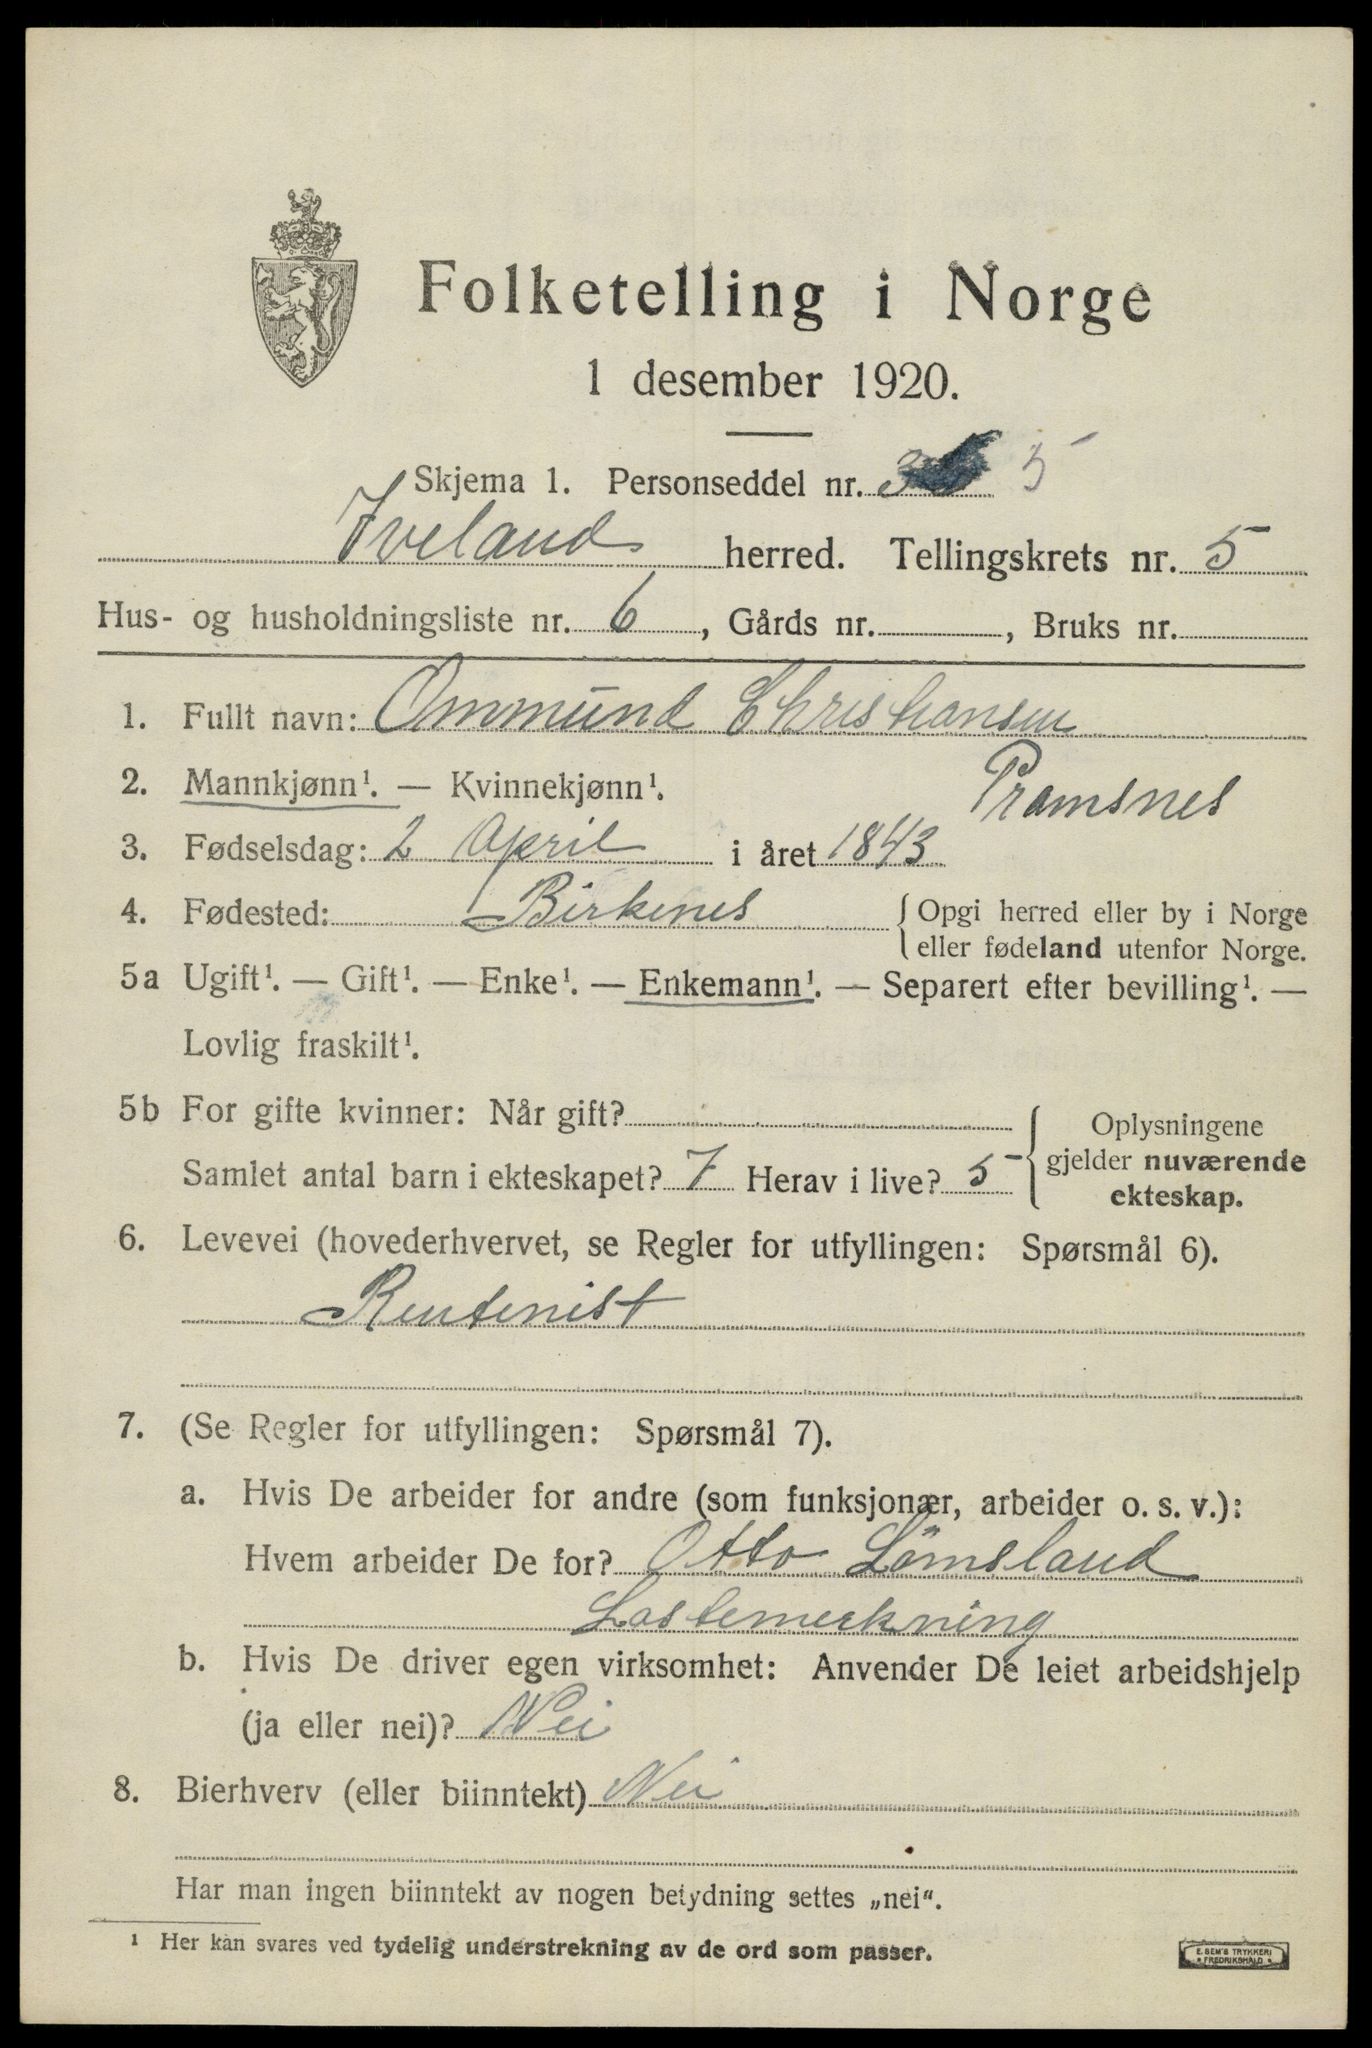 Folketelling i Norge
1 desember 1920.
Skjema 1. Personseddel nr. 5
Iveland herred. Tellingskrets nr. 5
Hus- og husholdningsliste nr. 6, Gårds nr. , Bruks nr.
1. Fullt navn: Ommund Christiansen
Pramsnes
2. Mannkjønn¹. — Kvinnekjønn¹.
3. Fødselsdag: 2 April i året 1843
4. Fødested: Birkenes { Opgi herred eller by i Norge
eller fødeland utenfor Norge.
5a Ugift¹. — Gift¹. — Enke¹. — Enkemann¹. — Separert efter bevilling¹. —
Lovlig fraskilt¹.
5b For gifte kvinner: Når gift?
Samlet antal barn i ekteskapet? 7 Herav i live? 5
Oplysningene
gjelder nuværende
ekteskap.
6. Levevei (hovederhvervet, se Regler for utfyllingen: Spørsmål 6).
Rentenist
7. (Se Regler for utfyllingen: Spørsmål 7).
a. Hvis De arbeider for andre (som funksjonær, arbeider o. s. v.):
Hvem arbeider De for? Otto Lömsland
Lastemerkning
b. Hvis De driver egen virksomhet: Anvender De leiet arbeidshjelp
(ja eller nei)? Nei
8. Bierhverv (eller biinntekt) Nei
Har man ingen biinntekt av nogen betydning settes „nei“.
¹ Her kan svares ved tydelig understrekning av de ord som passer.
E. SEM'S TRYKKERI
FREDRIKSHALD